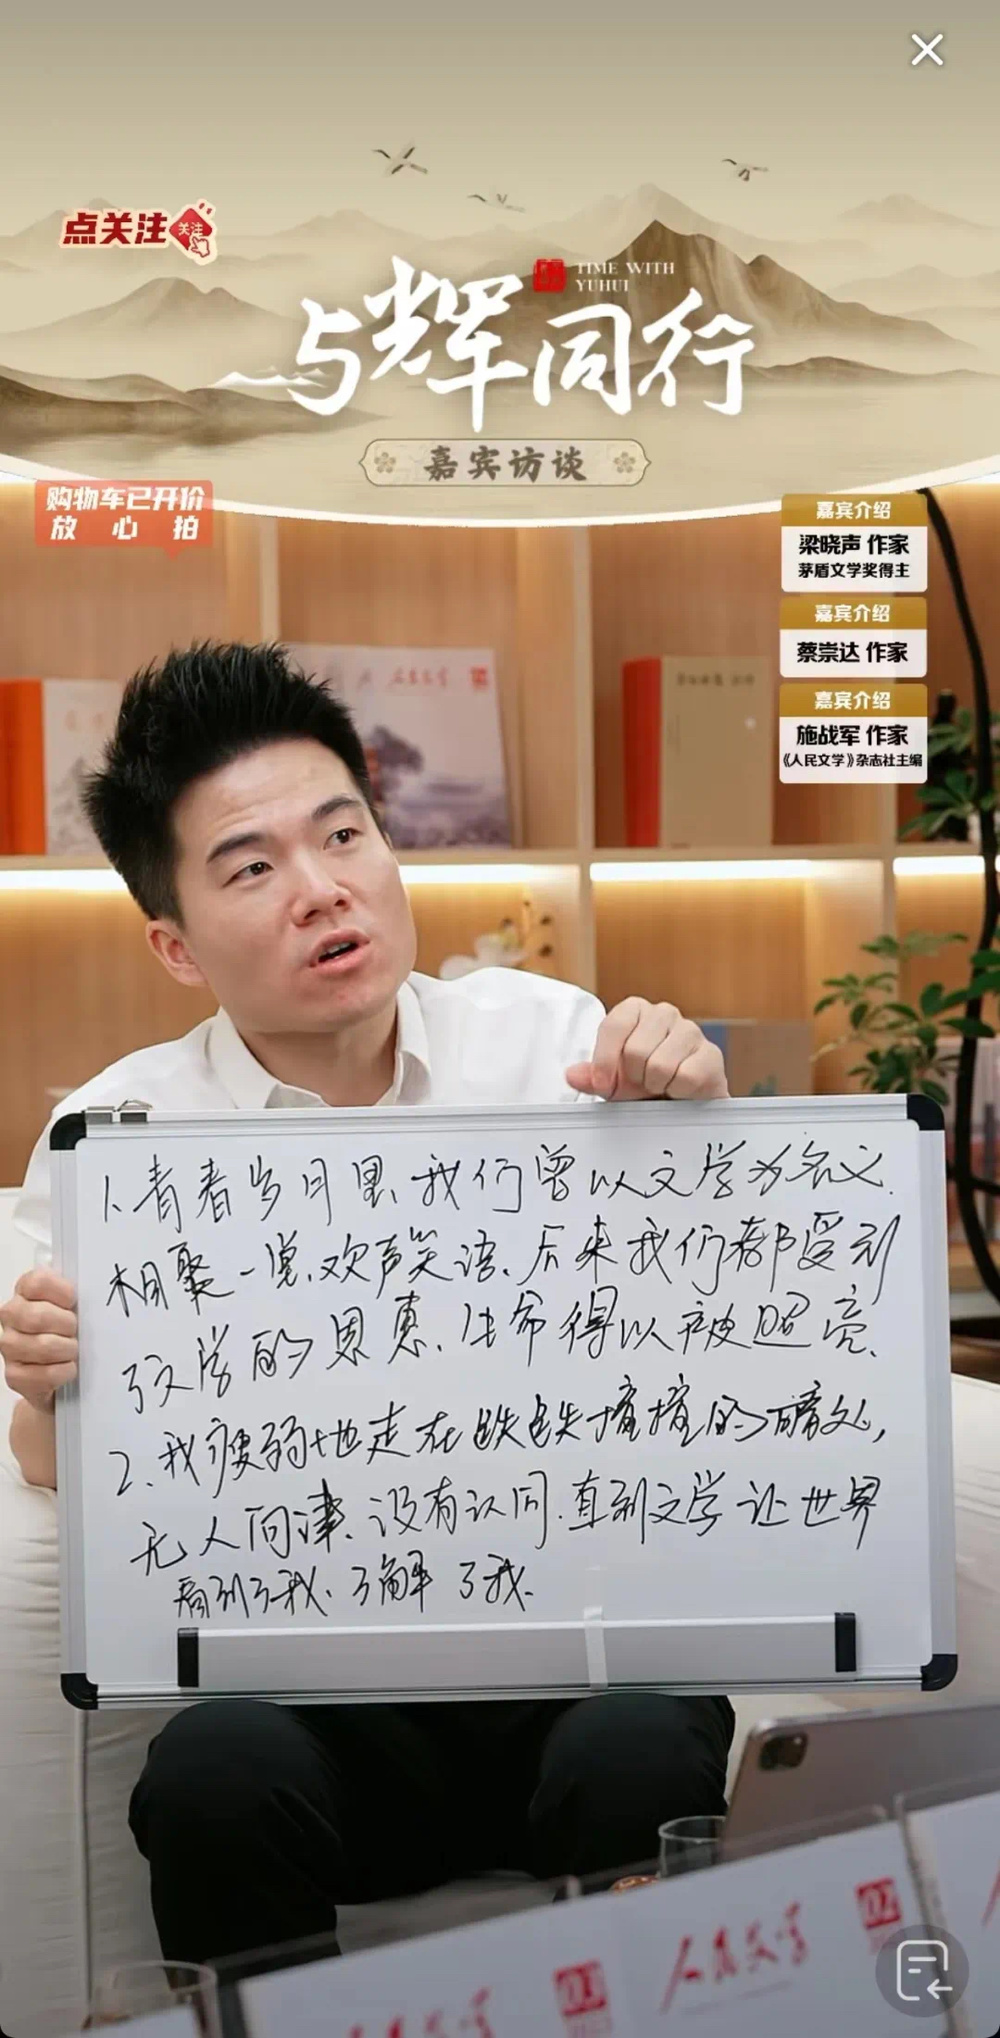 点关注
关注
TIME WITH
YUHUI
与辉同行
嘉宾访谈
购物车已开价
放心拍
嘉宾介绍
梁晓声 作家
茅盾文学奖得主
嘉宾介绍
蔡崇达 作家
嘉宾介绍
施战军 作家
《人民文学》杂志社主编
人民文学
1.青春岁月里、我们曾以文学为名义.
相聚一堂、欢声笑语、后来我们都受到
了文学的恩惠、生命得以被照亮、
2、我瘦弱地走在跌跌撞撞的暗处,
无人问津、没有认同.直到文学让世界
看到了我、了解了我、
人民文学
02
人民文学
03